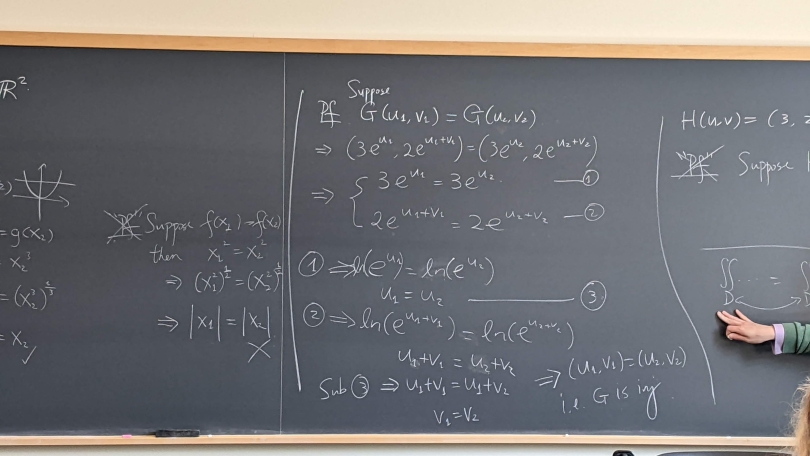 ℝ².
= g(x₂)
x₂³
= (x₂³)^{1/3}
= x₂
✓
"Pf" Suppose f(x₁) = f(x₂)
then x₁² = x₂²
⇒ (x₁²)^{1/2} = (x₂²)^{1/2}
⇒ |x₁| = |x₂|
✗
Suppose
Pf G(u₁, v₁) = G(u₂, v₂)
⇒ (3e^{u₁}, 2e^{u₁+v₁}) = (3e^{u₂}, 2e^{u₂+v₂})
⇒ { 3e^{u₁} = 3e^{u₂} — ①
2e^{u₁+v₁} = 2e^{u₂+v₂} — ②
① ⇒ ln(e^{u₁}) = ln(e^{u₂})
u₁ = u₂ — ③
② ⇒ ln(e^{u₁+v₁}) = ln(e^{u₂+v₂})
u₁+v₁ = u₂+v₂
Sub ③ ⇒ u₁+v₁ = u₁+v₂
v₁ = v₂
⇒ (u₁, v₁) = (u₂, v₂)
i.e. G is inj.
H(u,v) = (3, 2
"Pf" Suppose
∬ ... = ∬
D D